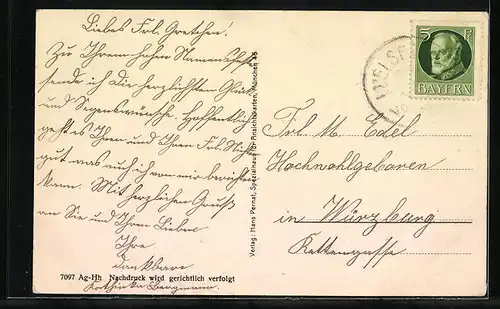 Liebes Frl. Gretchen!
Zu Ihrem hohen Namensfeste
sende ich die herzlichsten Glück
und Segenswünsche. Hoffentlich
geht es Ihnen und Ihren Frl.
gut was auch ich von mir berichten
kann. Mit herzlichen Gruß
an Sie und Ihren Lieben
Ihre
dankbare
Bergmann.
7097 Ag-Hh Nachdruck wird gerichtlich verfolgt
Verlag: Hans Pernat, Spezialhaus für Ansichtskarten, München 45
5 Pf
BAYERN
Frl. M. Edel
Hochwohlgeboren
in Würzburg
Kettengasse